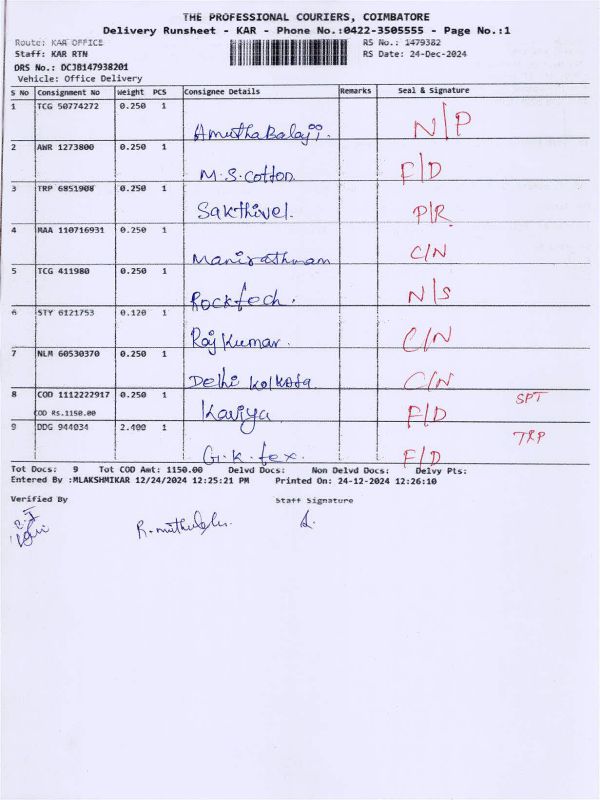 THE PROFESSIONAL COURIERS, COIMBATORE
Delivery Runsheet - KAR - Phone No.:0422-3505555 - Page No.:1
Route: KAR OFFICE
RS No.: 1479382
Staff: KAR RTN
RS Date: 24-Dec-2024
DRS No.: DCJB147938201
Vehicle: Office Delivery
S No Consignment No Weight PCS Consignee Details Remarks Seal & Signature
1 TCG 50774272 0.250 1 Amutha Balaji. N/P
2 AWR 1273800 0.250 1 M.S.cotton F/D
3 TRP 6851908 0.250 1 Sakthivel. P/R
4 MAA 110716931 0.250 1 Manirathnam C/N
5 TCG 411980 0.250 1 Rocktech. N/S
6 STY 6121753 0.120 1 Rajkumar. C/N
7 NLM 60530370 0.250 1 Delhi kolkota C/N
8 COD 1112222917 0.250 1 Kaviya F/D SPT
COD RS.1150.00
9 DDG 944034 2.400 1 G.k.tex. F/D TRP
Tot Docs: 9 Tot COD Amt: 1150.00 Delvd Docs: Non Delvd Docs: Delvy Pts:
Entered By :MLAKSHMIKAR 12/24/2024 12:25:21 PM Printed On: 24-12-2024 12:26:10
Verified By Staff Signature